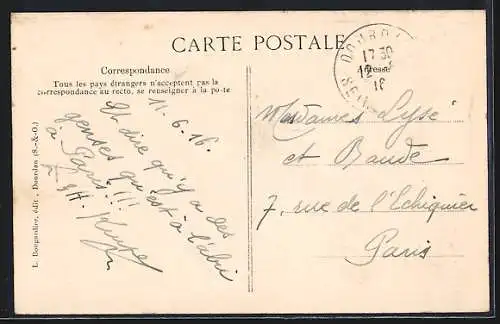 CARTE POSTALE
Correspondance
Tous les pays étrangers n'acceptent pas la
correspondance au recto, se renseigner à la poste
Adresse
17 30
12 - 6
16
11-6-16.
Et dire qu'y a des
qui est à l'abri
à Paris! !!!
Mesdames Lysé
et Baude
7, rue de l'Echiquier
Paris
L. Bougardier, édit., Dourdan (S.-&-O.)